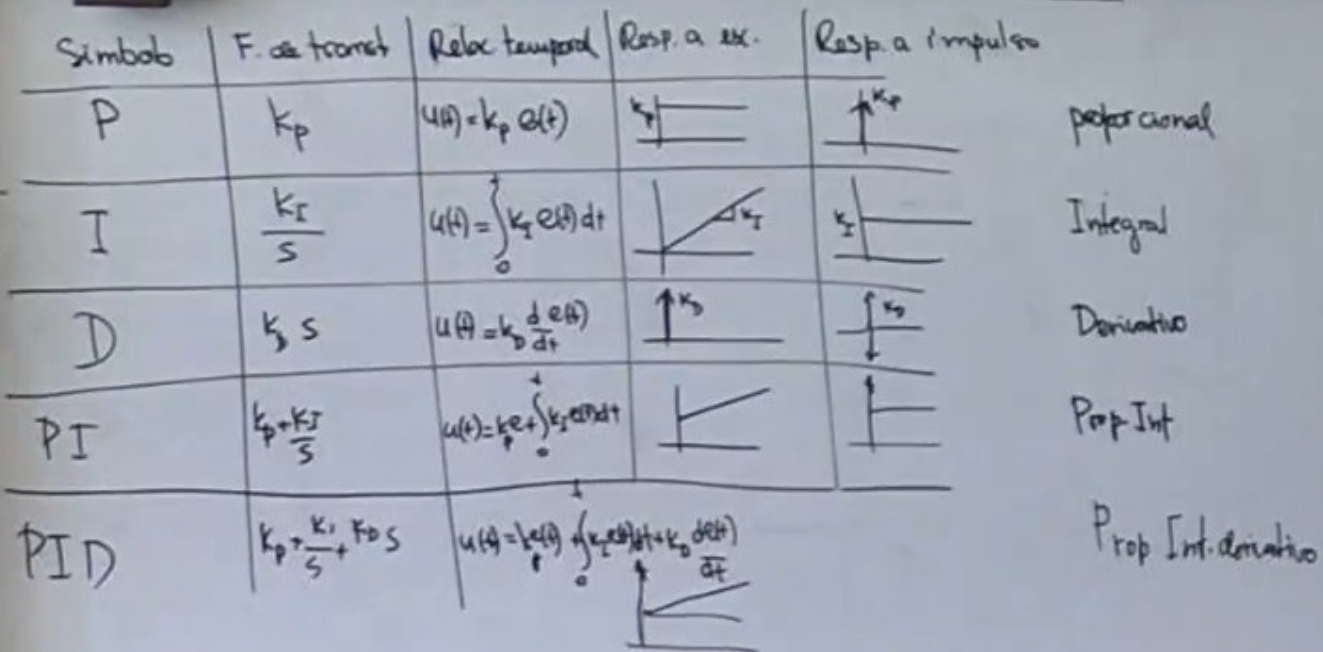 Simbolo F. de transf Relac temporal Resp. a esc. Resp. a impulso
P kp u(t)=kp e(t) kp kp proporcional
I kI/s u(t)=∫₀ᵗ kI e(t) dt kI kI Integral
D kD s u(t)=kD d e(t)/dt kD kD Derivativo
PI kp+kI/s u(t)=kp e+∫₀ᵗ kI e(t)dt Prop Int
PID kp+kI/s+kD s u(t)=kp e(t)+∫₀ᵗ kI e(t)dt+kD de(t)/dt Prop Int. derivativo